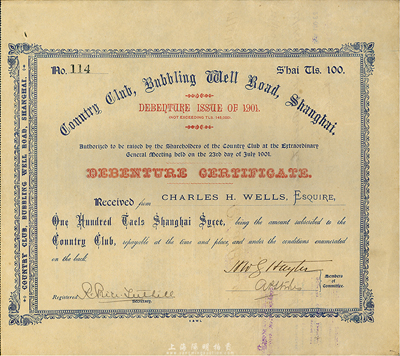 No. 114
S'hai Tls. 100.
Country Club, Bubbling Well Road, Shanghai.
DEBENTURE ISSUE OF 1901.
Authorized to be raised by the Shareholders of the Country Club at the Extraordinary
General Meeting held on the 23rd day of July 1901.
DEBENTURE CERTIFICATE.
Received from CHARLES H. WELLS, ESQUIRE,
One Hundred Taels Shanghai Sycee, being the amount subscribed to the
Country Club, repayable at the time and place, and under the conditions enumerated
on the back.
Members
of
Committee.
Registered
Secretary.
COUNTRY CLUB, BUBBLING WELL ROAD, SHANGHAI.